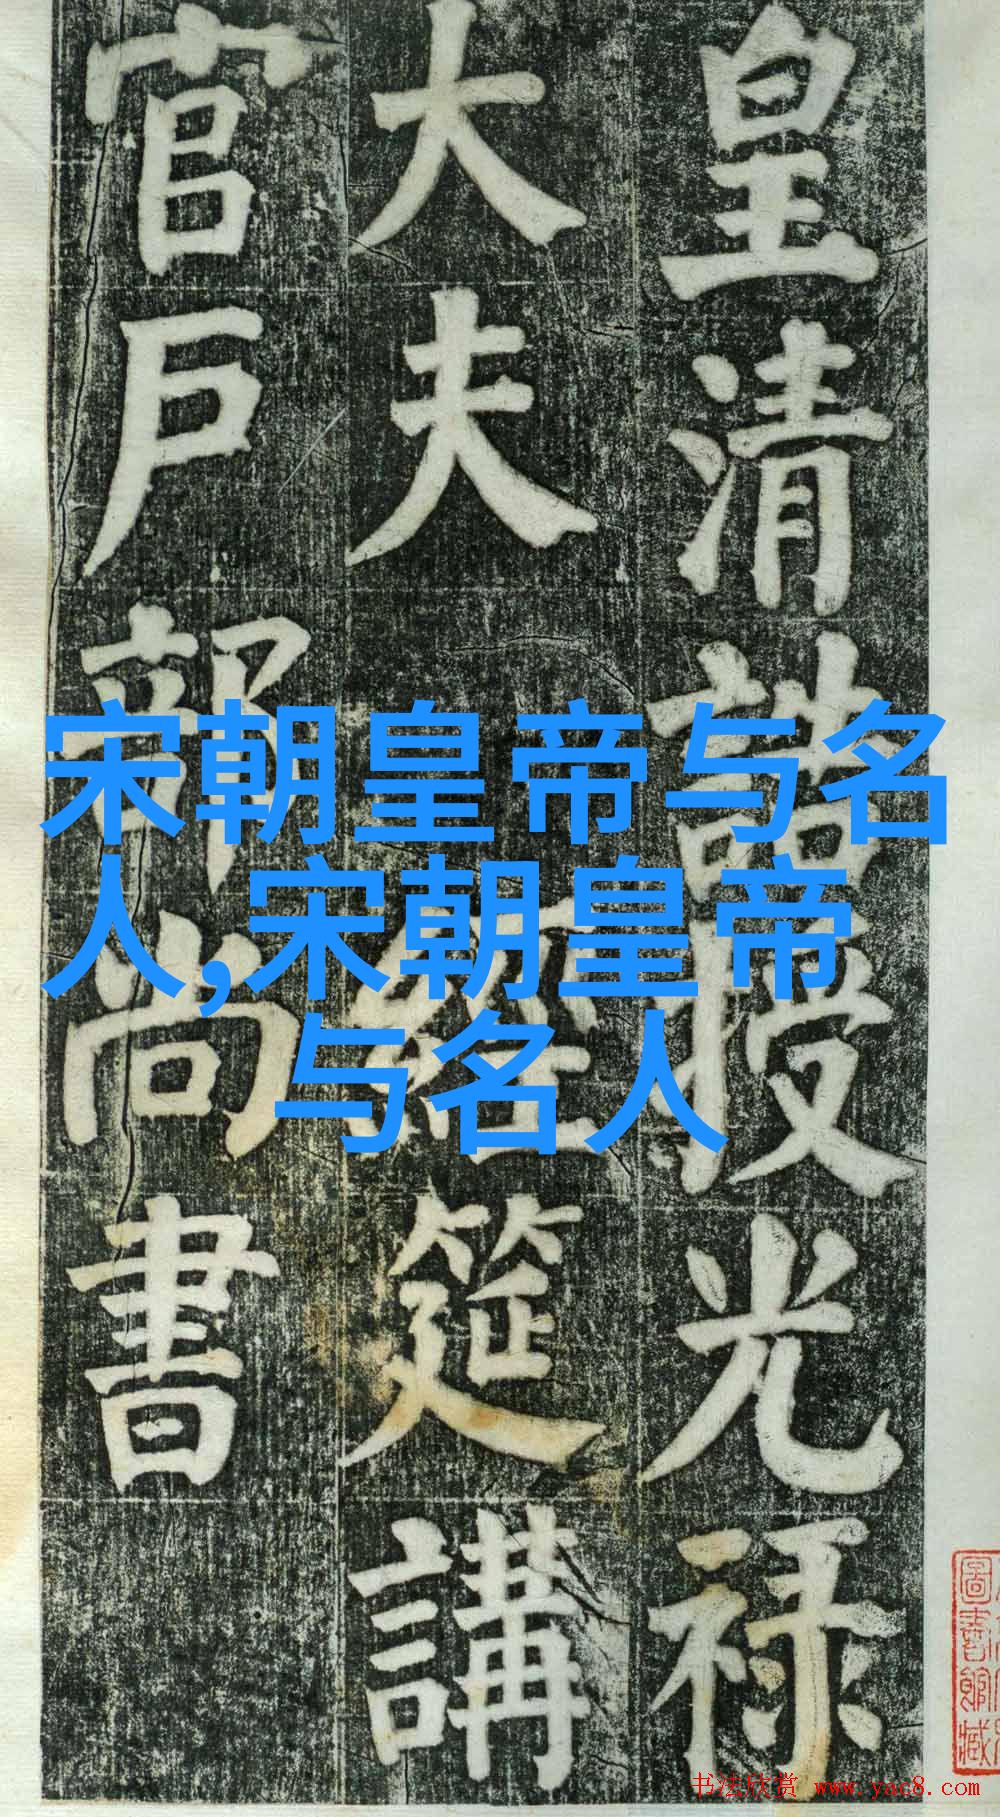 皇清誥授光禄
大夫經筵講
官戶部尚書
宋朝皇帝与名
人,宋朝皇帝
与名人
圖書館藏
书法欣赏 www.yac8.com